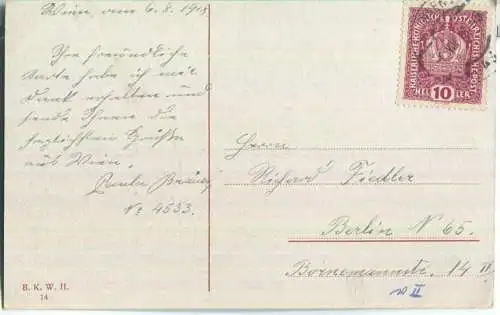 Wien, am 6.8.1918
Ihre freundliche
Karte habe ich mit
Dank erhalten und
sende Ihnen die
herzlichsten Grüße
aus Wien.
No 4533.
B. K. W. II.
14
KAISERLICHE KÖNIGLICHE ÖSTERREICHISCHE POST
HEL 10 LER
Herrn
Richard Fiedler
Berlin N 65.
Bornemannstr. 14 II
II